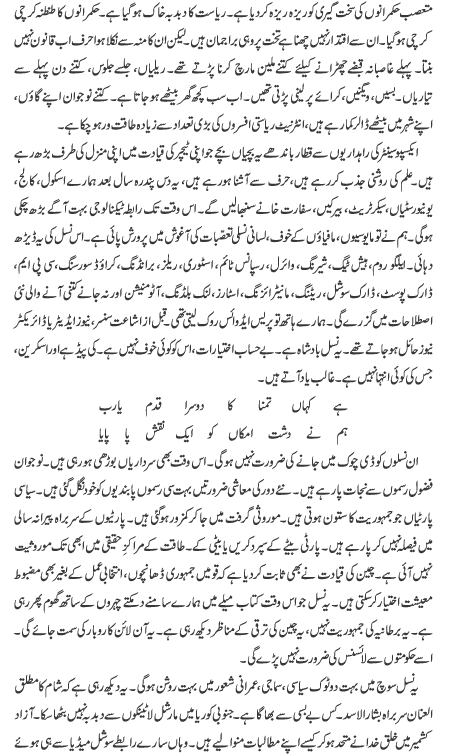 متعصب حکمرانوں کی سخت گیری کو ریزہ ریزہ کر دیا ہے۔ ریاست کا دبدبہ خاک ہو گیا ہے۔ حکمرانوں کا طنطنہ کرچی
کرچی ہو گیا۔ ان سے اقتدار نہیں چھنا ہے تخت پر وہی براجمان ہیں۔ لیکن ان کا منہ سے نکلا ہوا حرف اب قانون نہیں
بنتا۔ پہلے غاصبانہ قبضے چھڑانے کیلئے کتنے ملین مارچ کرنا پڑتے تھے۔ ریلیاں، جلسے جلوس، کتنے دن پہلے سے
تیاریاں۔ بسیں، ویگنیں، کرائے پر لینی پڑتی تھیں۔ اب سب کچھ گھر بیٹھے ہو جاتا ہے۔ کتنے نوجوان اپنے گاؤں،
اپنے شہر میں بیٹھے ڈالر کما رہے ہیں، انٹرنیٹ ریاستی افسروں کی بڑی تعداد سے زیادہ طاقت ور ہو چکا ہے۔
ایکسپو سینٹر کی راہداریوں سے قطار باندھے یہ بچیاں بچے جو اپنی ٹیچر کی قیادت میں اپنی منزل کی طرف بڑھ رہے
ہیں۔ علم کی روشنی جذب کر رہے ہیں، حرف سے آشنا ہو رہے ہیں، یہ دس پندرہ سال بعد ہمارے اسکول، کالج،
یونیورسٹیاں، سیکرٹریٹ، بیرکیں، سفارت خانے سنبھالیں گے۔ اس وقت تک رابطہ ٹیکنالوجی بہت آگے بڑھ چکی
ہو گی۔ ہم نے تو مایوسیوں، مافیاؤں کے خوف، لسانی نسلی تعصبات کی آغوش میں پرورش پائی ہے۔ اس نسل کی یہ ڈیڑھ
دہائی۔ ایلگو ردم، ہیش ٹیگ، شیئرنگ، وائرل، رسپانس ٹائم، اسٹوری، ریلز، برانڈنگ، کراؤڈ سورسنگ، سی پی ایم،
ڈارک پوسٹ، ڈارک سوشل، ریٹنگ، مانیٹرائزنگ، اسٹارز، لنک بلڈنگ، آٹومیشن اور نہ جانے کتنی آنے والی نئی
اصطلاحات میں گزرے گی۔ ہمارے ہاتھ تو پریس ایڈوائس روک لیتی تھی۔ قبل از اشاعت سنسر، نیوز ایڈیٹر یا ڈائریکٹر
نیوز حائل ہو جاتے تھے۔ یہ نسل بادشاہ ہے۔ بے حساب اختیارات، اس کو کوئی خوف نہیں ہے۔ کی پیڈ ہے اور اسکرین،
جس کی کوئی انتہا نہیں ہے۔ غالب یاد آتے ہیں۔
ہے کہاں تمنا کا دوسرا قدم یارب
ہم نے دشت امکاں کو ایک نقش پا پایا
ان نسلوں کو ڈی چوک میں جانے کی ضرورت نہیں ہو گی۔ اس وقت بھی سرداریاں بوڑھی ہو رہی ہیں۔ نوجوان
فضول رسموں سے نجات پا رہے ہیں۔ نئے دور کی معاشی ضرورتیں بہت سی رسموں پابندیوں کو خود نگل گئی ہیں۔ سیاسی
پارٹیاں جو جمہوریت کا ستون ہوتی ہیں۔ موروثی گرفت میں جا کر کمزور ہو گئی ہیں۔ پارٹیوں کے سربراہ پیرانہ سالی
میں فیصلہ نہیں کر پا رہے ہیں۔ پارٹی بیٹے کے سپرد کریں یا بیٹی کے۔ طاقت کے مراکزِ حقیقی میں ابھی تک موروثیت
نہیں آئی ہے۔ چین کی قیادت نے بھی ثابت کر دیا ہے کہ قومیں جمہوری ڈھانچوں، انتخابی عمل کے بغیر بھی مضبوط
معیشت اختیار کر سکتی ہیں۔ یہ نسل جو اس وقت کتاب میلے میں ہمارے سامنے دمکتے چہروں کے ساتھ گھوم پھر رہی
ہے۔ یہ برطانیہ کی جمہوریت نہیں، یہ چین کی ترقی کے مناظر دیکھ رہی ہے۔ یہ آن لائن کاروبار کی سمت جائے گی۔
اسے حکومتوں سے لائسنس کی ضرورت نہیں پڑے گی۔
یہ نسل سوچ میں بہت دو ٹوک سیاسی، سماجی، عمرانی شعور میں بہت روشن ہو گی۔ یہ دیکھ رہی ہے کہ شام کا مطلق
العنان سربراہ بشارالاسد۔ کس بے بسی سے بھاگا ہے۔ جنوبی کوریا میں مارشل لا ٹینکوں سے دبدبہ نہیں بٹھا سکا۔ آزاد
کشمیر میں خلق خدا نے متحد ہو کر کیسے اپنے مطالبات منوا لیے ہیں۔ وہاں سارے رابطے سوشل میڈیا سے ہی ہوئے